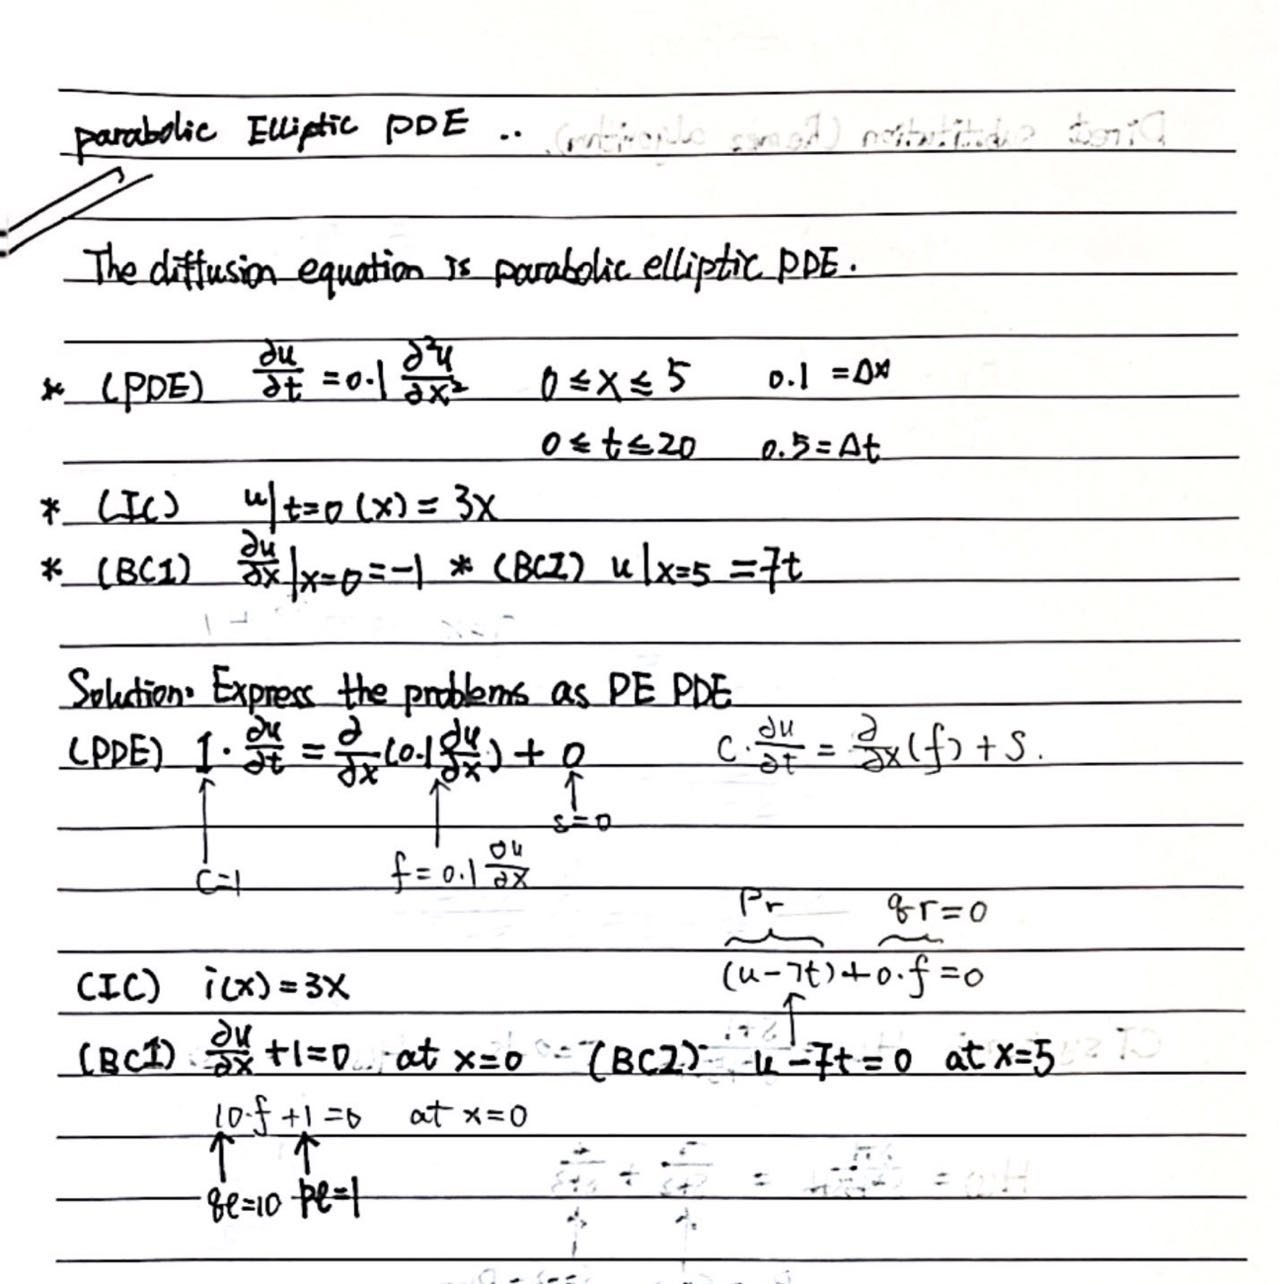 parabolic Elliptic PDE ..
The diffusion equation is parabolic elliptic PDE.
* (PDE) ∂u/∂t = 0.1 ∂²u/∂x² 0 ≤ x ≤ 5 0.1 = Δx
0 ≤ t ≤ 20 0.5 = Δt
* (IC) u|t=0 (x) = 3x
* (BC1) ∂u/∂x|x=0 = -1 * (BC2) u|x=5 = 7t
Solution: Express the problems as PE PDE
(PDE) 1 · ∂u/∂t = ∂/∂x (0.1 ∂u/∂x) + 0 C · ∂u/∂t = ∂/∂x (f) + S.
s=0
C=1 f = 0.1 ∂u/∂x
Pr qr=0
(IC) i(x) = 3x (u-7t) + 0·f = 0
(BC1) ∂u/∂x + 1 = 0 at x=0 (BC2) u - 7t = 0 at x=5
10·f + 1 = 0 at x=0
ql=10 pl=1